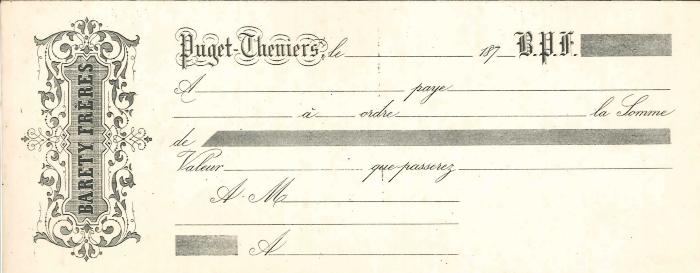 BARETY FRÈRES
Puget-Theniers, le 187 B.P.F.
A paye
à ordre la Somme
de
Valeur que passerez
A M
A